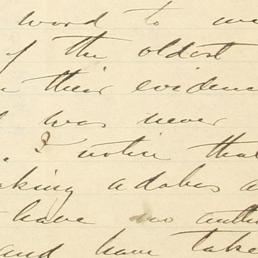 word to
of the oldest
their evidence
was never
I notice that
adobes
have no
and have take